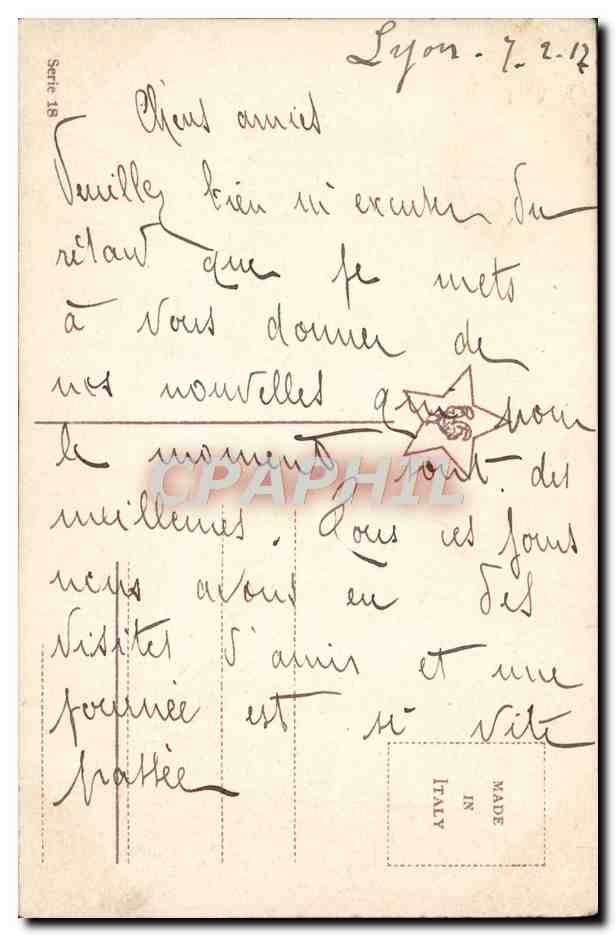 Lyon - 7-2-17
Serie 18
Chers amies
Veuillez bien m'excuser du
rétard que je mets
à vous donner de
nos nouvelles qui pour
le moment sont des
meilleures. Tous ces jours
nous avons eu des
visites d'amis et une
journée est si vite
passée
CPAPHIL
MADE
IN
ITALY